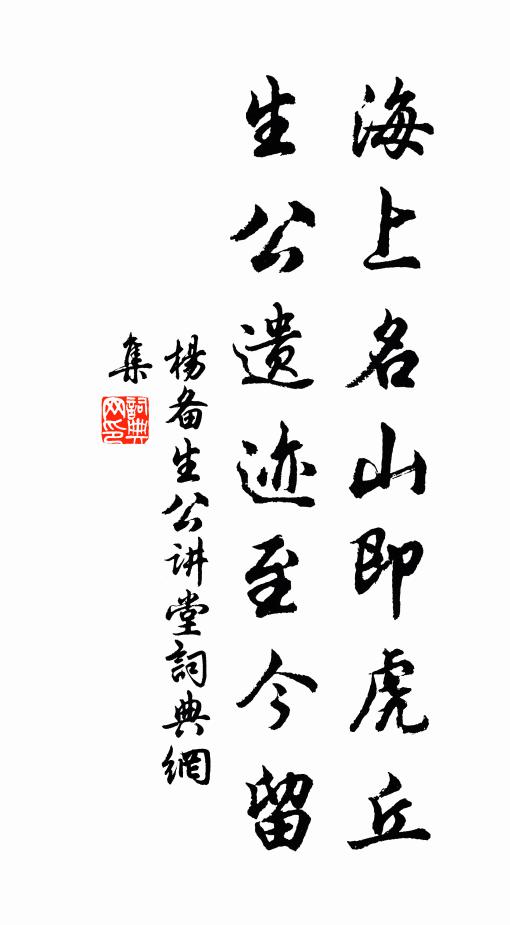 海上名山即虎丘
生公遗迹至今留
楊备生公讲堂詞典網
集
詞典网印